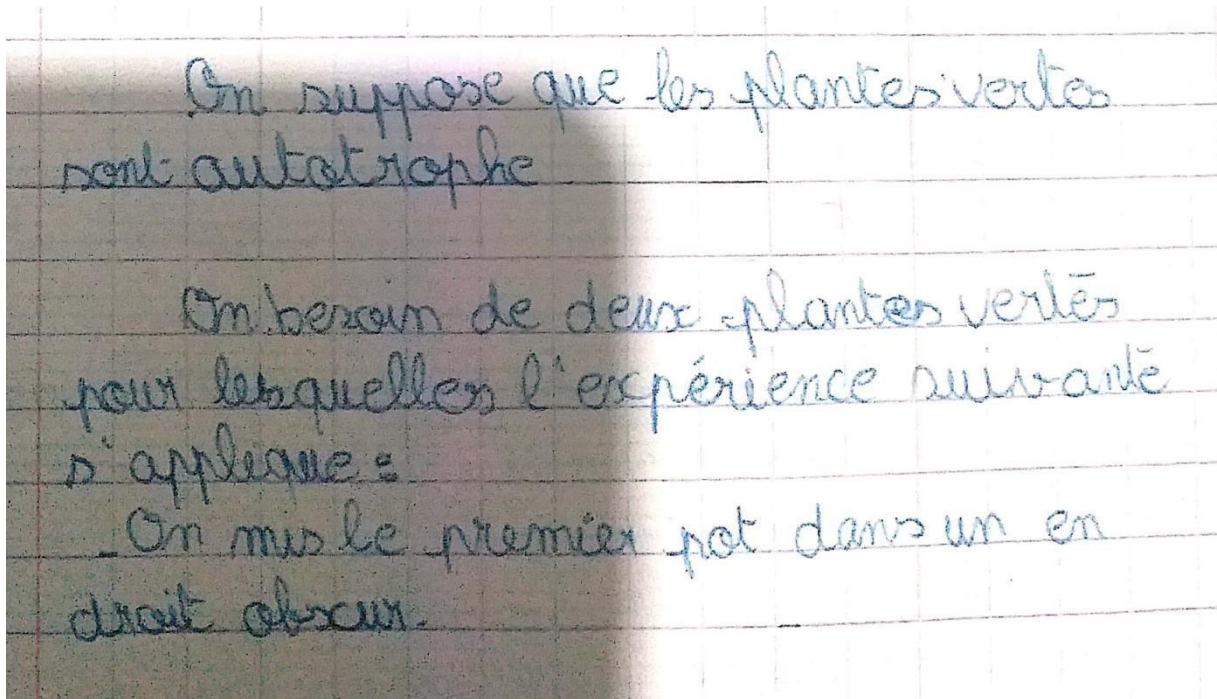 On suppose que les plantes vertes
sont autotrophe
On besoin de deux plantes vertes
pour lesquelles l'expérience suivante
s'applique :
- On mis le premier pot dans un en
droit obscur.